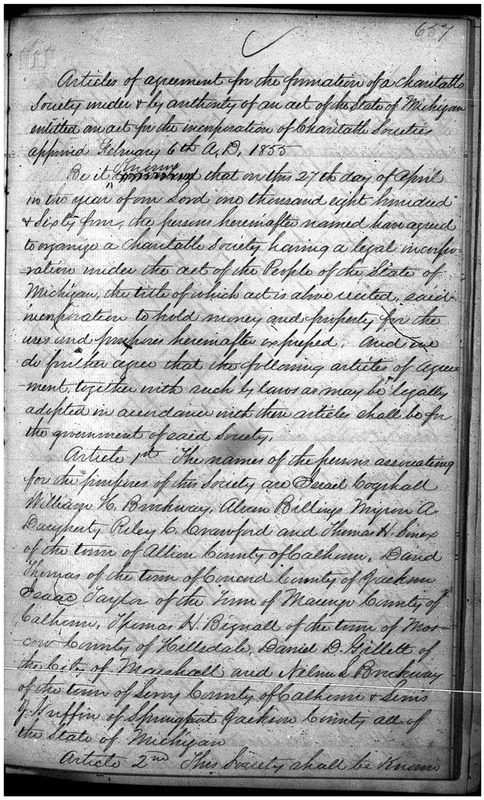 657
Articles of agreement for the formation of a Charitable
Society under & by authority of an act of the State of Michigan
entitled an act for the incorporation of Charitable Societies
approved February 6th A.D. 1855
Be it known that on this 27th day of April
in the year of our Lord one thousand eight hundred
& Sixty four, the persons hereinafter named have agreed
to organize a Charitable Society having a legal incorpo-
ration under the act of the People of the State of
Michigan, the title of which act is above recited, said
incorporation to hold money and property for the
uses and purposes hereinafter expressed. And we
do further agree that the following articles of agree-
ment, together with such by laws as may be legally
adopted in accordance with these articles shall be for
the government of said Society.
Article 1st The names of the persons associating
for the purposes of this Society are Israel Cogshall
William H. Brockway, Alvan Billings Myron A.
Daugherty Riley C. Crawford and Thomas H. Sinex
of the town of Albion County of Calhoun, David
Thomas of the town of Concord County of Jackson
Isaac Taylor of the Town of Marengo County of
Calhoun, Thomas H. Bignall of the town of Mos-
cow County of Hillsdale, David D. Gillett of
the City of Marshall and Nelson S. Brockway
of the town of Leroy County of Calhoun &
J. Huffin of Springport Jackson County all of
the State of Michigan
Article 2nd This Society shall be Known